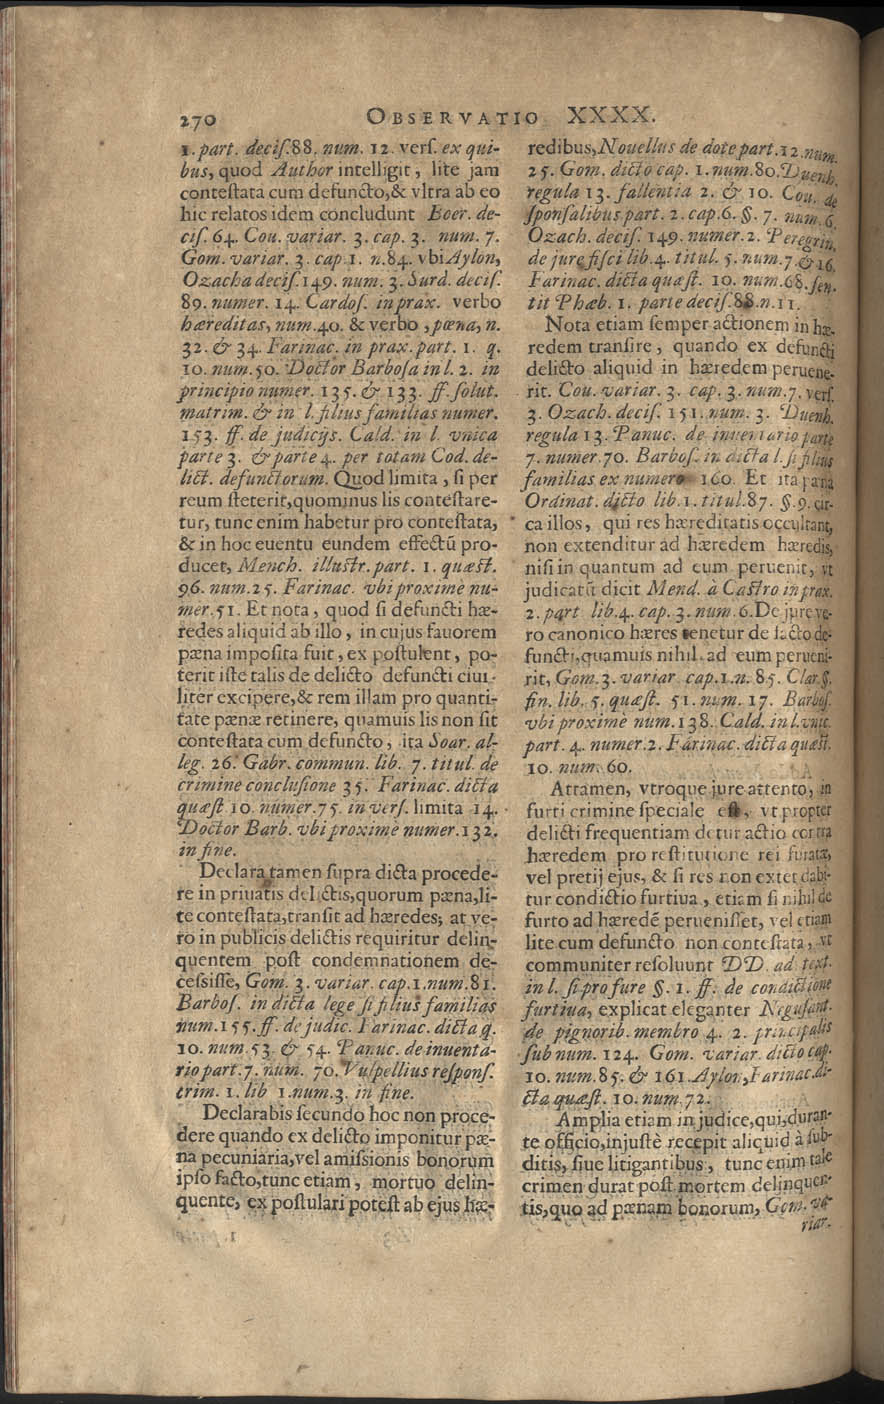 270 OBSERVATIO XXXX.
1. part. decis.88. num. 12. vers. ex qui-
bus, quod Author intelligit, lite jam
contestata cum defuncto,& vltra ab eo
hic relatos idem concludunt Boer. de-
cis. 64. Cou. variar. 3. cap. 3. num. 7.
Gom. variar. 3. cap.1. n.84. vbi Aylon,
Ozacha decis.149. num. 3. Surd. decis.
89. numer. 14. Cardos. in prax. verbo
hæreditas, num.40. & verbo, pœna, n.
32. & 34. Farinac. in prax. part. 1. q.
10. num.50. Doctor Barbosa in l. 2. in
principio numer. 135. & 133. ff. solut.
matrim. & in l. filius familias numer.
153. ff. de judicijs. Cald. in l. vnica
parte 3. & parte 4. per totam Cod. de-
lict. defunctorum. Quod limita, si per
reum steterit,quominus lis contestare-
tur, tunc enim habetur pro contestata,
& in hoc euentu eundem effectũ pro-
ducet, Mench. illustr. part. 1. quæst.
96. num.25. Farinac. vbi proximè nu-
mer.51. Et nota, quod si defuncti hæ-
redes aliquid ab illo, in cujus fauorem
pæna imposita fuit, ex postulent, po-
terit iste talis de delicto defuncti ciui-
liter excipere,& rem illam pro quanti-
tate pænæ retinere, quamuis lis non sit
contestata cum defuncto, ita Soar. al-
leg. 26. Gabr. commun. lib. 7. titul. de
crimine conclusione 35. Farinac. dicta
quæst 10. numer.75. in vers. limita 14.
Doctor Barb. vbi proximè numer.132.
in fine.
Declara tamen supra dicta procede-
re in priuatis delictis,quorum pæna,li-
te contestata,transit ad hæredes; at ve-
ro in publicis delictis requiritur delin-
quentem post condemnationem de-
cessisse, Gom. 3. variar. cap.1.num.81.
Barbos. in dicta lege si filius familias
num.155.ff. de judic. Farinac. dicta q.
10. num 53. & 54. Panuc. de inuenta-
rio part.7. num. 70. Vulpellius respons.
crim. 1. lib 1.num.3. in fine.
Declarabis secundo hoc non proce-
dere quando ex delicto imponitur pæ-
na pecuniaria,vel amissionis bonorum
ipso facto,tunc etiam, mortuo delin-
quente, ex postulari potest ab ejus hæ-
redibus,Nouellus de dote part.12.num.
25. Gom. dicto cap. 1.num.80.Duenh.
regula 13. fallentia 2. & 10. Cou. de
sponsalibus part. 2. cap.6. §. 7. num.6.
Ozach. decis. 149. numer.2. Peregrin.
de jure fisci lib.4. titul. 5. num.7.& 16.
Farinac. dicta quæst. 10. num.68. sen-
tit Phæb. 1. parte decis.88.n.11.
Nota etiam semper actionem in hæ-
redem transire, quando ex defuncti
delicto aliquid in hæredem peruene-
rit. Cou. variar. 3. cap. 3. num.7. vers.
3. Ozach. decis. 151. num. 3. Duenh.
regula 13. Panuc. de inuentario parte
7. numer.70. Barbos. in dicta l. si filius
familias ex numero 160. Et ita pæna
Ordinat. dicto lib.1. titul.87. §.9. cir-
ca illos, qui res hæreditatis occultant,
non extenditur ad hæredem hæredis,
nisi in quantum ad eum peruenit, vt
judicatũ dicit Mend. à Castro in prax.
2. part lib.4. cap. 3. num.6.De jure ve-
ro canonico hæres tenetur de facto de-
functi,quamuis nihil ad eum perueni-
rit, Gom.3. variar cap.1.n. 85. Clar.§.
fin. lib. 5. quæst. 51. num. 17. Barbos.
vbi proximè num.138. Cald. in l.vnic.
part. 4. numer.2. Farinac. dicta quæst.
10. num. 60.
Attamen, vtroque jure attento, in
furti crimine speciale est, vt propter
delicti frequentiam detur actio contra
hæredem pro restitutione rei furatæ,
vel pretij ejus, & si res non extet dabi-
tur condictio furtiua, etiam si nihil de
furto ad hæredẽ peruenisset, vel etiam
lite cum defuncto non contestata, vt
communiter resoluunt DD. ad text.
in l. si pro fure §. 1. ff. de condictione
furtiua, explicat eleganter Negusant.
de pignorib. membro 4. 2. principalis
sub num. 124. Gom. variar. dicto cap.
10. num.85. & 161.Aylon,Farinac.di-
cta quæst. 10. num.72.
Amplia etiam in judice,qui,duran-
te officio,injustè recepit aliquid à sub-
ditis, siue litigantibus, tunc enim tale
crimen durat post mortem delinquen-
tis,quo ad pænam bonorum, Gom. va-
riar.